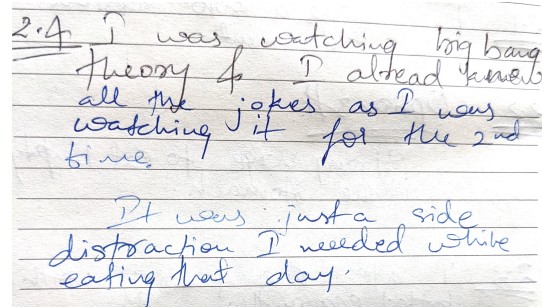 2.4 I was watching big bang
theory & I alread know
all the jokes as I was
watching it for the 2nd
time.
It was just a side
distraction I needed while
eating that day.